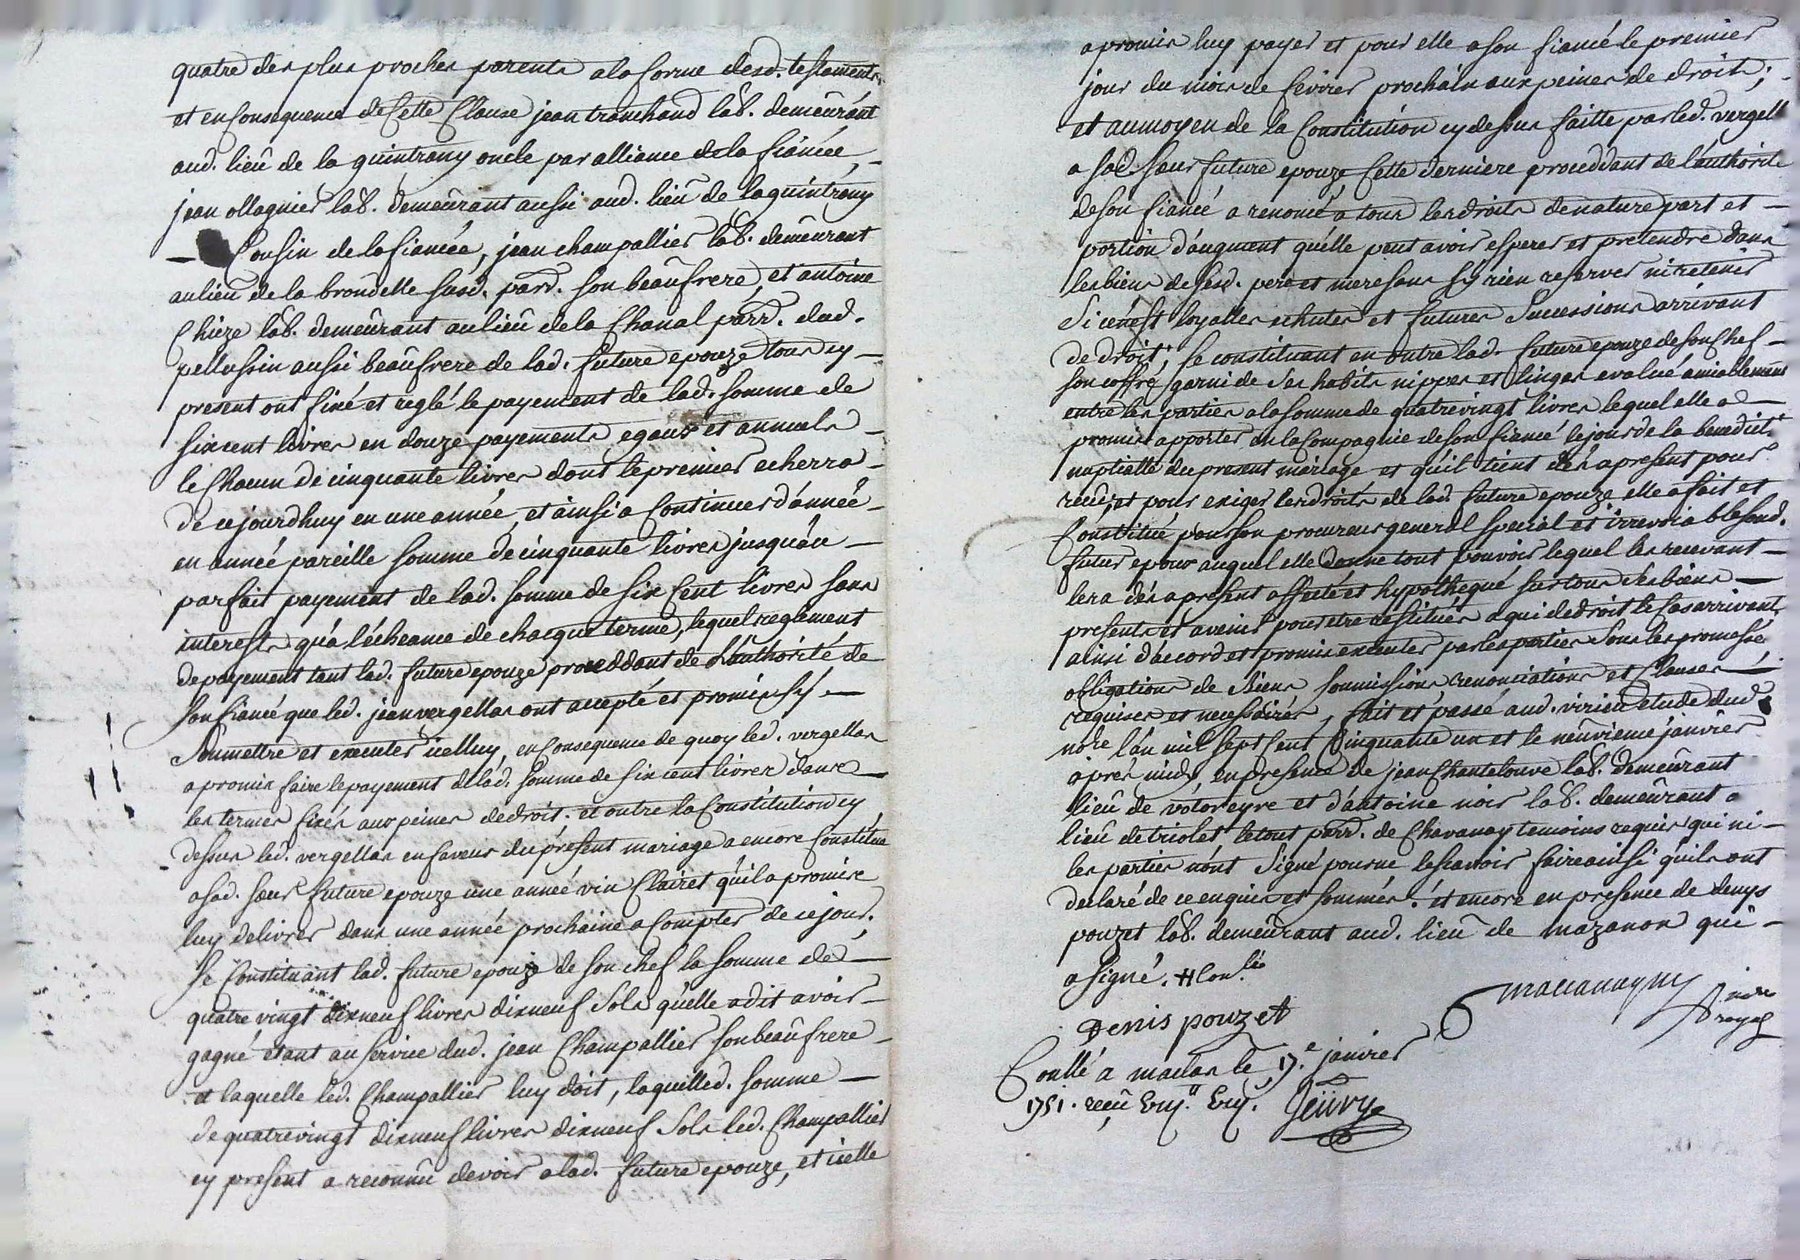 quatre des plus proches parents a la forme desd. testaments,
et en Consequence de Cette Clause jean tranchand lab. demeurant
aud. lieu de la quintrany oncle par alliance de la fiancée, –
jean ollagnier lab. demeurant aussi aud. lieu de la quintrany
– Cousin de la fiancée, jean champallier lab. demeurant
au lieu de la brondelle susd. parr. son beaufrere, et antoine
Chieze lab. demeurant au lieu de la Chanal parr. dud.
pellussin aussi beaufrere de lad. future epouze tous cy –
present ont fixé et reglé le payement de lad. somme de
six cent livres en douze payements egaux et annuels –
le Chacun de cinquante livres dont le premier echerra –
de cejourdhuy en une année, et ainsi a Continuer d'année –
en année pareille somme de cinquante livres jusqu'au –
parfait payement de lad. somme de six Cent livres sans
interests qu'a l'écheance de chacque terme, lequel reglement
de payement tant lad. future epouze proceddant de l'authorité de
son fiancé que led. jean vergellas ont accepté et promis s'y –
Soumettre et executer icelluy, en Consequence de quoy led. vergellas
a promis faire le payement de lad. somme de six cent livres dans –
les termes fixés aux peines de droit. et outre la Constitution cy
dessus led. vergellas en faveur du présent mariage a encore Constitué
a sad. sœur future epouze une année vin Clairet qu'il a promise
luy delivrer dans une année prochaine a Compter de ce jour.
Se Constituant lad. future epouze de son chef la somme de –
quatre vingt dixneuf livres dixneuf Sols qu'elle a dit avoir –
gagné etant au service dud. jean Champallier son beaufrere –
et laquelle led. Champallier luy doit, laquelled. somme –
de quatrevingt dixneuf livres dixneuf Sols led. Champallier
cy present a reconnu devoir a lad. future epouze, et icelle
a promis luy payer et pour elle a son fiancé le premier
jour du mois de fevrier prochain aux peines de droit; –
et au moyen de la Constitution cy dessus faitte par led. vergellas
a sad. sœur future epouze Cette derniere proceddant de l'authorité
de son fiancé a renoncé a tous les droits de nature part et –
portion d'augment qu'elle peut avoir esperer et pretendre dans
les biens de sesd. pere et mere sans s'y rien reserver ni retenir
Si ce n'est loyalles echutes et futures Successions arrivant
de droit; se constituant en outre lad. future epouze de son Chef –
son coffre garni de ses habits nippes et linges evalué amiablement
entre les parties a la somme de quatrevingt livres lequel elle a –
promis apporter en la Compagnie de son fiancé le jour de la benedict.
nuptialle du present mariage et qu'il tient dès a present pour
recu, et pour exiger les droits de lad. future epouze elle a fait et
Constitué pour son procureur general special et irrevocable sond.
futur epoux auquel elle donne tout pouvoir lequel les recevant –
les a dès a present affecté et hypothequé sur tous ses biens –
presents et avenir pour etre restitués a qui de droit le Cas arrivant,
ainsi d'accord et promis executer par les parties Sous les promesse
obligations de Biens soumissions renonciations et Clauses –
requises et necessaires, fait et passé aud. virieu etude dud.
nore l'an mil sept Cent Cinquante un et le neuvieme janvier
après midy, en presence de jean Chantelouve lab. demeurant
lieu de vétoreyre et d'antoine noir lab. demeurant a
lieu de triolet le tout parr. de Chavanay temoins requis qui ni –
les parties n'ont Signé pour ne le sçavoir faire ainsi qu'ils ont
declaré de ce enquis et sommés. et encore en presence de denys
pouzet lab. demeurant aud. lieu de mazanon qui –
a signé.
Denis pouzet
nore royal
Conllé a maclas le 17.e janvier
1751. reçu